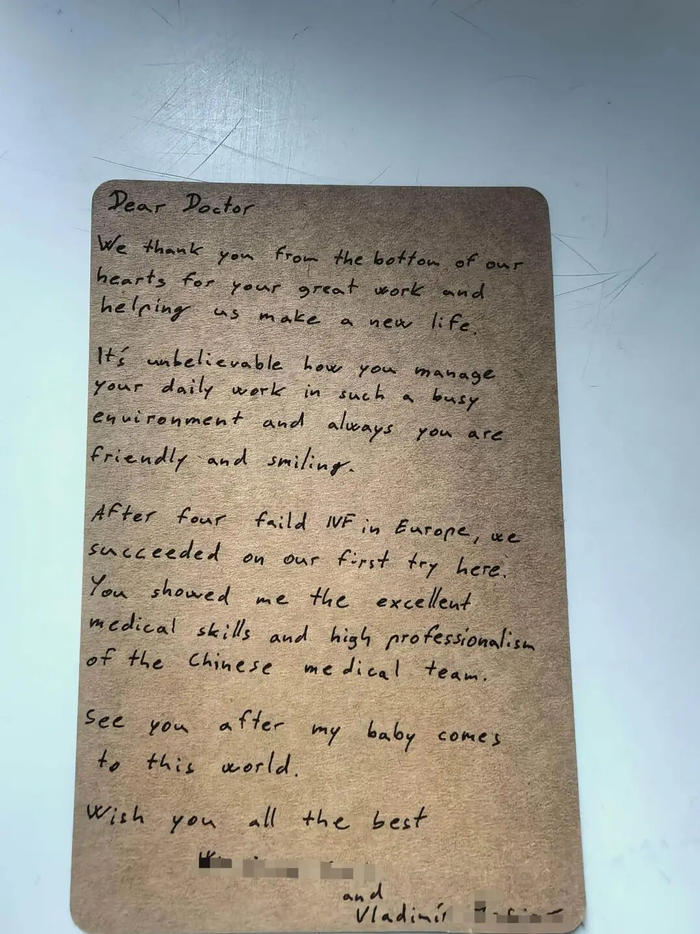 Dear Doctor
We thank you from the bottom of our
hearts for your great work and
helping us make a new life.
It's unbelievable how you manage
your daily work in such a busy
environment and always you are
friendly and smiling.
After four faild IVF in Europe, we
succeeded on our first try here.
You showed me the excellent
medical skills and high professionalism
of the Chinese medical team.
See you after my baby comes
to this world.
Wish you all the best
and
Vladimír